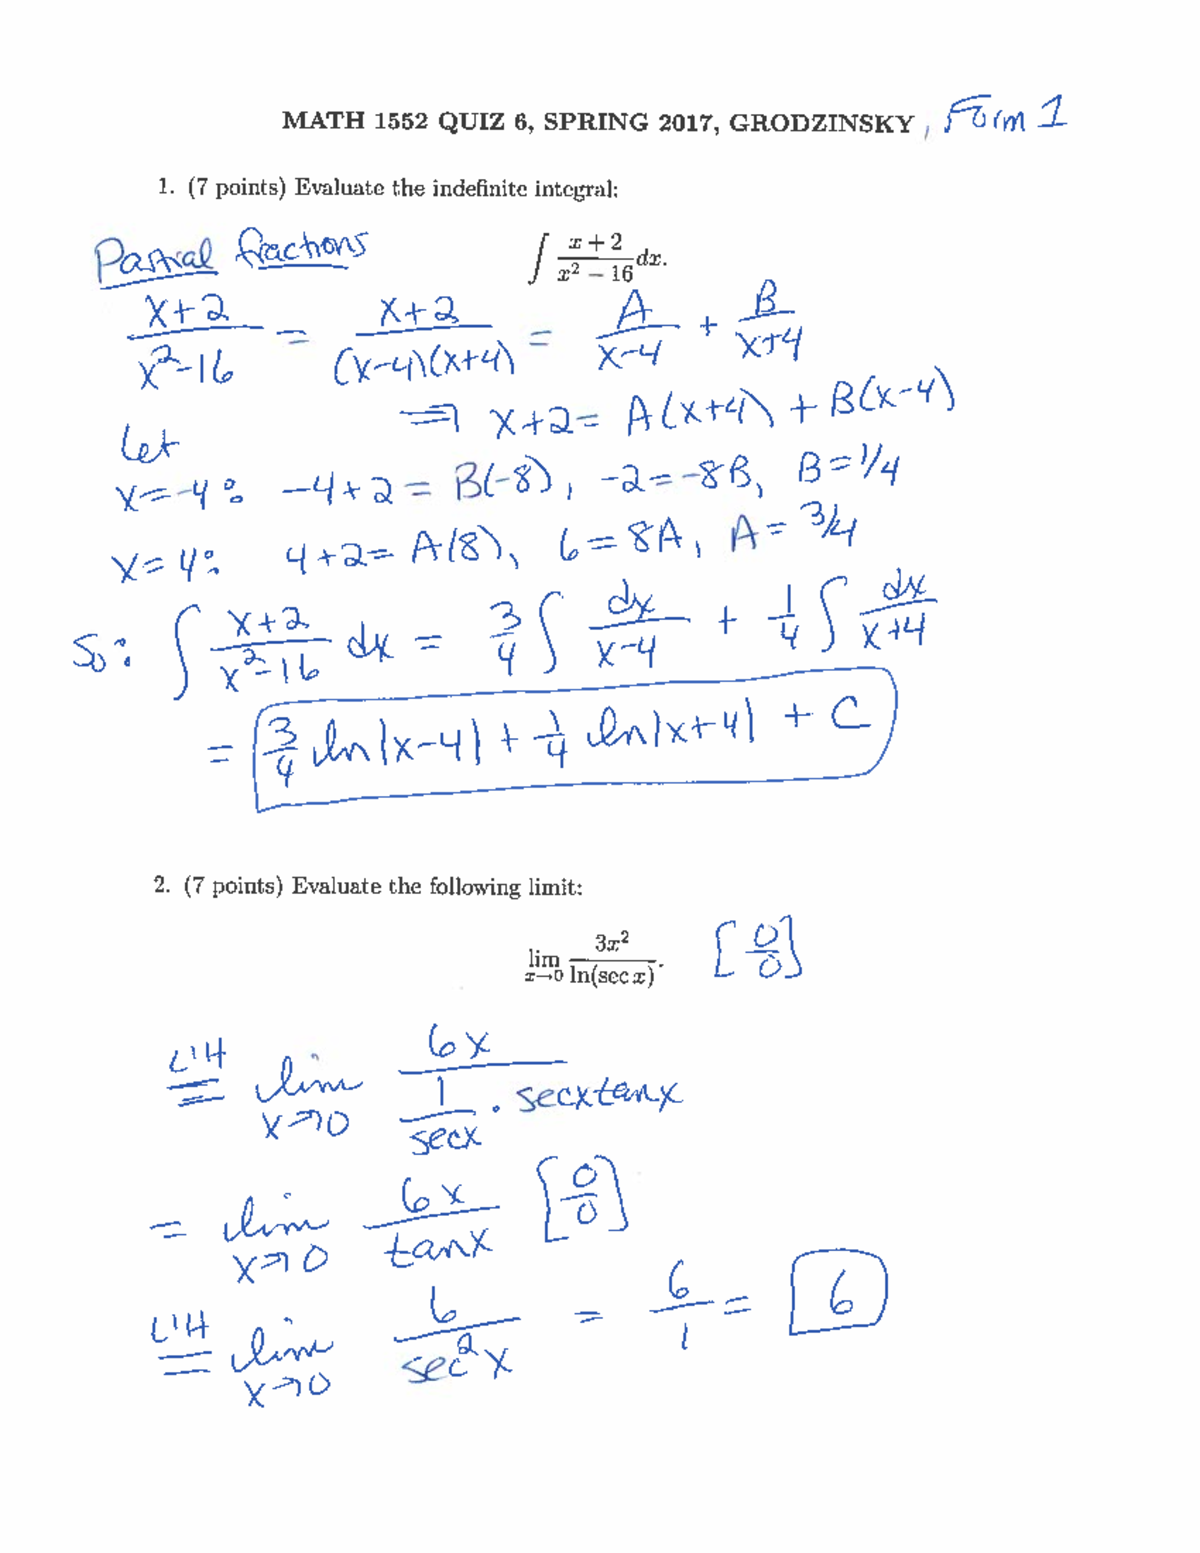 MATH 1552 QUIZ 6, SPRING 2017, GRODZINSKY, Form 1
1. (7 points) Evaluate the indefinite integral:
∫ (x + 2)/(x² − 16) dx.
Partial fractions
(x+2)/(x²-16) = (x+2)/((x-4)(x+4)) = A/(x-4) + B/(x+4)
⇒ x+2 = A(x+4) + B(x-4)
let
x=-4: -4+2 = B(-8), -2=-8B, B=1/4
x=4: 4+2= A(8), 6=8A, A=3/4
So: ∫ (x+2)/(x²-16) dx = 3/4 ∫ dx/(x-4) + 1/4 ∫ dx/(x+4)
= 3/4 ln|x-4| + 1/4 ln|x+4| + C
2. (7 points) Evaluate the following limit:
lim x→0 3x²/ln(sec x). [0/0]
L'H = lim x→0 6x/(1/secx · secxtanx)
= lim x→0 6x/tanx [0/0]
L'H = lim x→0 6/sec²x = 6/1 = 6